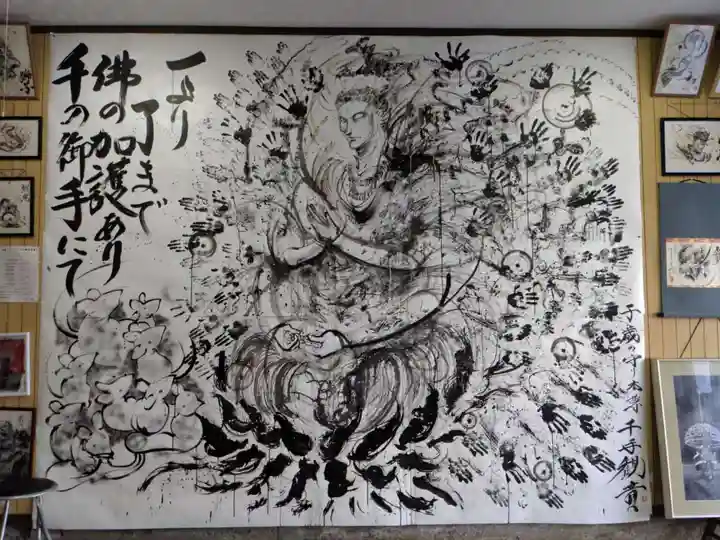 一より
了まで
佛の加護あり
千の御手にて
子歳守本尊千手観音